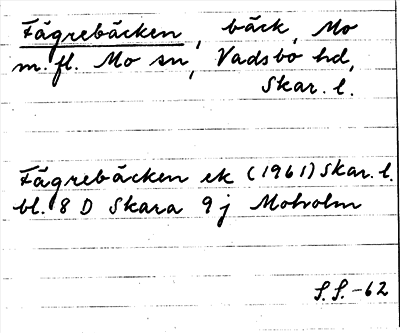 Fägrebäcken, bäck, Mo
m.fl. Mo sn, Vadsbo hd,
Skar. l.
Fägrebäcken ek (1961) Skar. l.
bl. 8 D Skara 9 j Moholm
S.S. -62